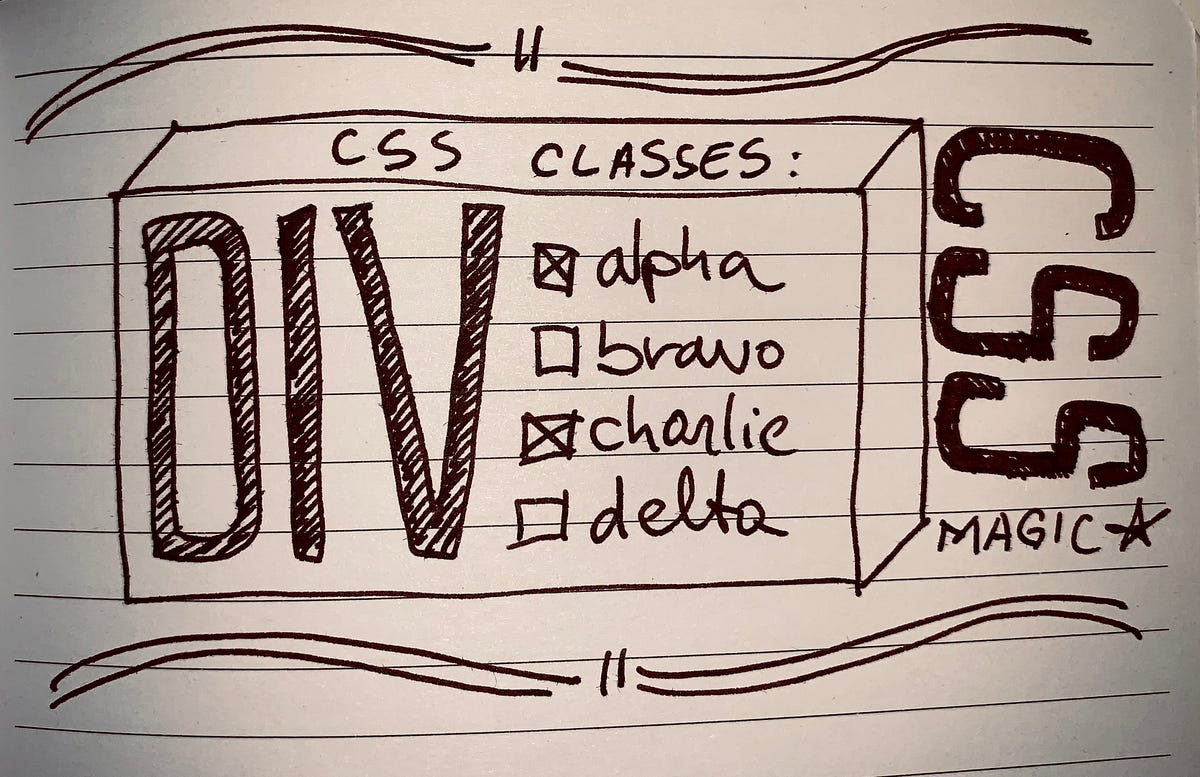 CSS CLASSES:
DIV
alpha
bravo
charlie
delta
CSS
MAGIC